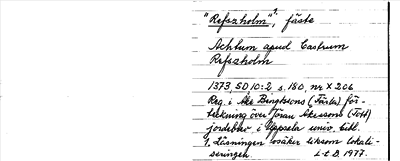 "Refszholm"¹, fäste
Achtum apud Castrum
Refszholm
1373, SD 10:2 s. 180, nr X 206
Reg. i Åke Bengtssons (Färla) för-
teckning över Jöran Åkessons (Tott)
jordebrev i Uppsala univ. bibl.
1. Läsningen osäker liksom lokali-
seringen. L-t D. 1977.